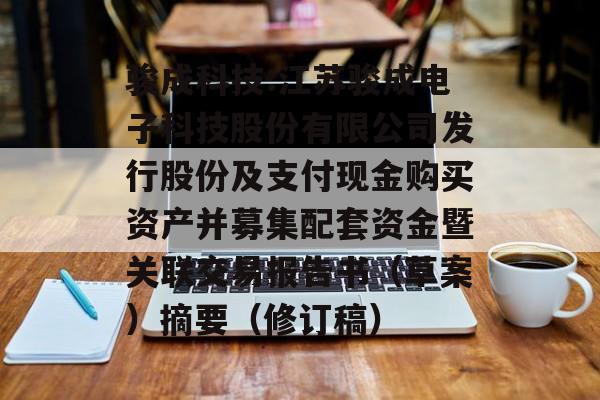 骏成科技:江苏骏成电
子科技股份有限公司发
行股份及支付现金购买
资产并募集配套资金暨
关联交易报告书（草案
）摘要（修订稿）